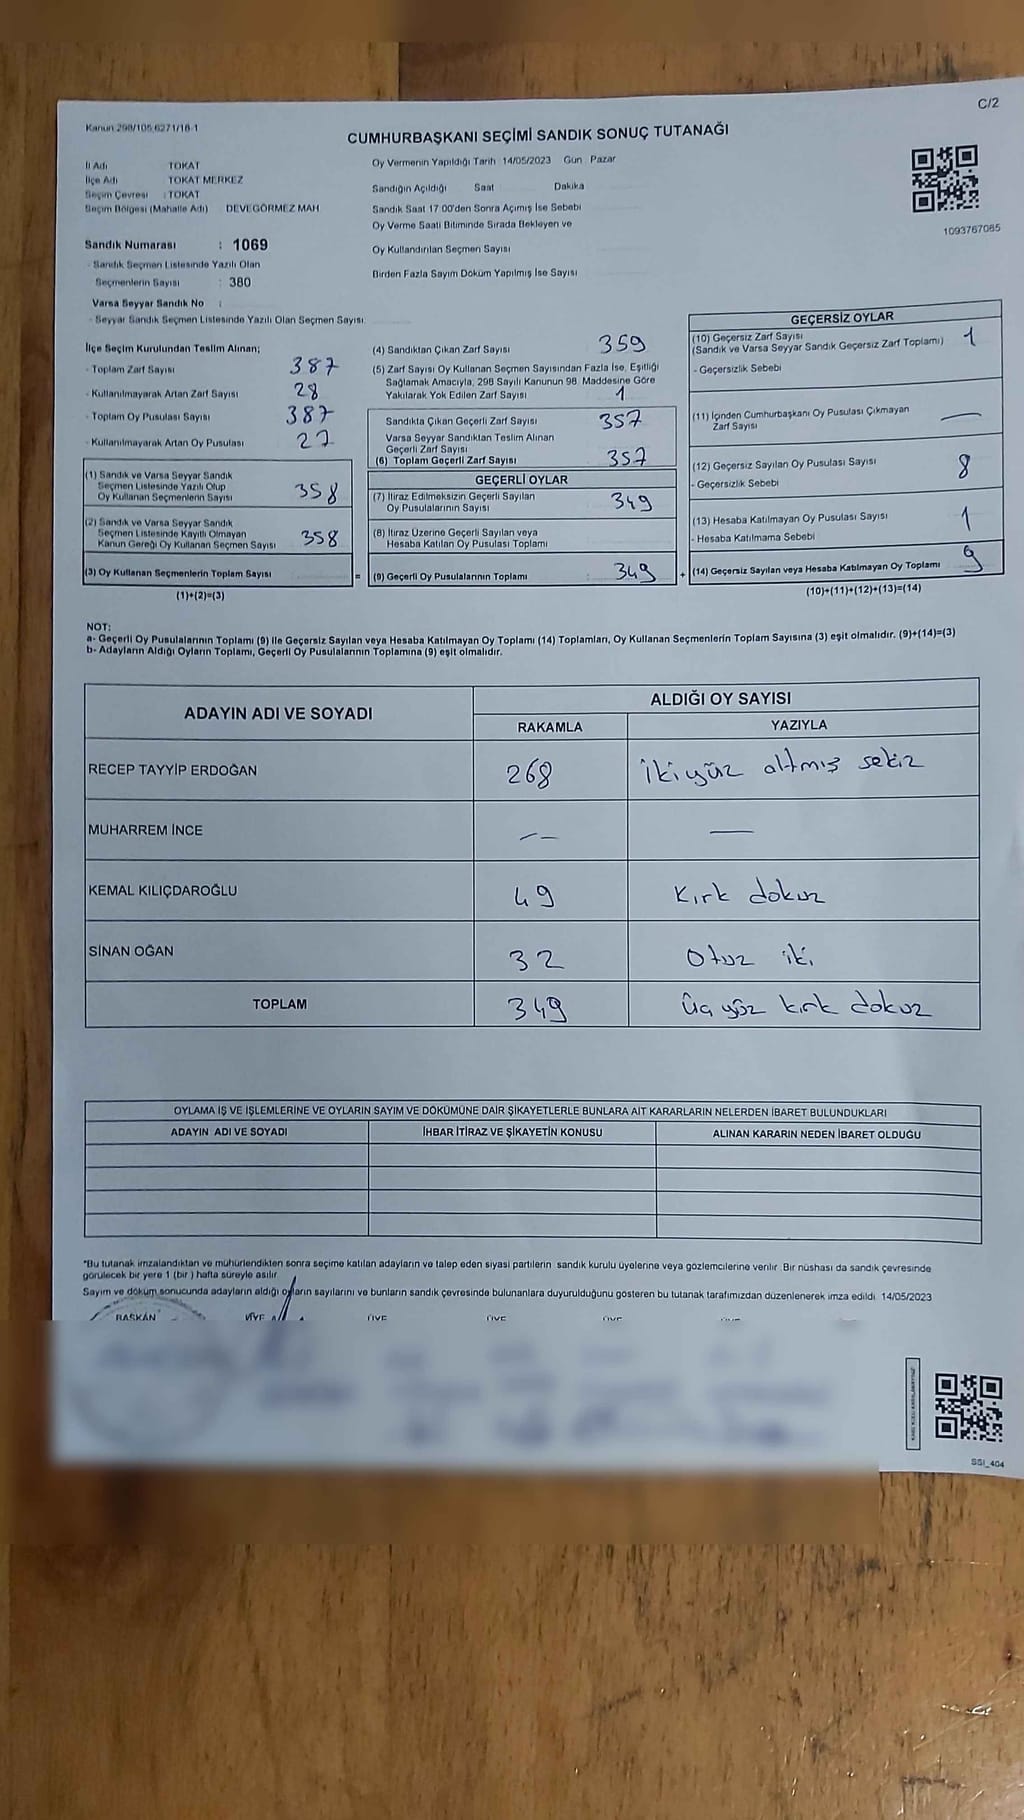 C/2
Kanun 298/105,6271/18-1
CUMHURBAŞKANI SEÇİMİ SANDIK SONUÇ TUTANAĞI
İl Adı TOKAT
İlçe Adı TOKAT MERKEZ
Seçim Çevresi : TOKAT
Seçim Bölgesi (Mahalle Adı) DEVEGÖRMEZ MAH
Oy Vermenin Yapıldığı Tarih 14/05/2023 Gün Pazar
Sandığın Açıldığı Saat Dakika
Sandık Saat 17:00'den Sonra Açımış İse Sebebi
Oy Verme Saati Bitiminde Sırada Bekleyen ve
Oy Kullandırılan Seçmen Sayısı
Birden Fazla Sayım Döküm Yapılmış İse Sayısı
1093767085
Sandık Numarası : 1069
- Sandık Seçmen Listesinde Yazılı Olan
Seçmenlerin Sayısı : 380
Varsa Seyyar Sandık No :
- Seyyar Sandık Seçmen Listesinde Yazılı Olan Seçmen Sayısı:
İlçe Seçim Kurulundan Teslim Alınan;
- Toplam Zarf Sayısı 387
- Kullanılmayarak Artan Zarf Sayısı 28
- Toplam Oy Pusulası Sayısı 387
- Kullanılmayarak Artan Oy Pusulası 27
(1) Sandık ve Varsa Seyyar Sandık
Seçmen Listesinde Yazılı Olup
Oy Kullanan Seçmenlerin Sayısı 358
(2) Sandık ve Varsa Seyyar Sandık
Seçmen Listesinde Kayıtlı Olmayan
Kanun Gereği Oy Kullanan Seçmen Sayısı 358
(3) Oy Kullanan Seçmenlerin Toplam Sayısı
(1)+(2)=(3)
(4) Sandıktan Çıkan Zarf Sayısı 359
(5) Zarf Sayısı Oy Kullanan Seçmen Sayısından Fazla İse, Eşitliği
Sağlamak Amacıyla, 298 Sayılı Kanunun 98. Maddesine Göre
Yakılarak Yok Edilen Zarf Sayısı 1
Sandıkta Çıkan Geçerli Zarf Sayısı 357
Varsa Seyyar Sandıktan Teslim Alınan
Geçerli Zarf Sayısı
(6) Toplam Geçerli Zarf Sayısı 357
GEÇERLİ OYLAR
(7) İtiraz Edilmeksizin Geçerli Sayılan
Oy Pusulalarının Sayısı 349
(8) İtiraz Üzerine Geçerli Sayılan veya
Hesaba Katılan Oy Pusulası Toplamı
= (9) Geçerli Oy Pusulalarının Toplamı : 349 +
GEÇERSİZ OYLAR
(10) Geçersiz Zarf Sayısı 1
(Sandık ve Varsa Seyyar Sandık Geçersiz Zarf Toplamı)
- Geçersizlik Sebebi
(11) İçinden Cumhurbaşkanı Oy Pusulası Çıkmayan —
Zarf Sayısı
(12) Geçersiz Sayılan Oy Pusulası Sayısı 8
- Geçersizlik Sebebi
(13) Hesaba Katılmayan Oy Pusulası Sayısı 1
- Hesaba Katılmama Sebebi
(14) Geçersiz Sayılan veya Hesaba Katılmayan Oy Toplamı 9
(10)+(11)+(12)+(13)=(14)
NOT:
a- Geçerli Oy Pusulalarının Toplamı (9) ile Geçersiz Sayılan veya Hesaba Katılmayan Oy Toplamı (14) Toplamları, Oy Kullanan Seçmenlerin Toplam Sayısına (3) eşit olmalıdır. (9)+(14)=(3)
b- Adayların Aldığı Oyların Toplamı, Geçerli Oy Pusulalarının Toplamına (9) eşit olmalıdır.
ADAYIN ADI VE SOYADI ALDIĞI OY SAYISI
RAKAMLA YAZIYLA
RECEP TAYYİP ERDOĞAN 268 İkiyüz altmış sekiz
MUHARREM İNCE -- —
KEMAL KILIÇDAROĞLU 49 Kırk dokuz
SİNAN OĞAN 32 Otuz iki
TOPLAM 349 Üç yüz kırk dokuz
OYLAMA İŞ VE İŞLEMLERİNE VE OYLARIN SAYIM VE DÖKÜMÜNE DAİR ŞİKAYETLERLE BUNLARA AİT KARARLARIN NELERDEN İBARET BULUNDUKLARI
ADAYIN ADI VE SOYADI İHBAR İTİRAZ VE ŞİKAYETİN KONUSU ALINAN KARARIN NEDEN İBARET OLDUĞU
*Bu tutanak imzalandıktan ve mühürlendikten sonra seçime katılan adayların ve talep eden siyasi partilerin sandık kurulu üyelerine veya gözlemcilerine verilir. Bir nüshası da sandık çevresinde
görülecek bir yere 1 (bir ) hafta süreyle asılır
Sayım ve döküm sonucunda adayların aldığı oyların sayılarını ve bunların sandık çevresinde bulunanlara duyurulduğunu gösteren bu tutanak tarafımızdan düzenlenerek imza edildi. 14/05/2023
BAŞKAN ÜYE ÜYE ÜYE ÜYE
SSI_404